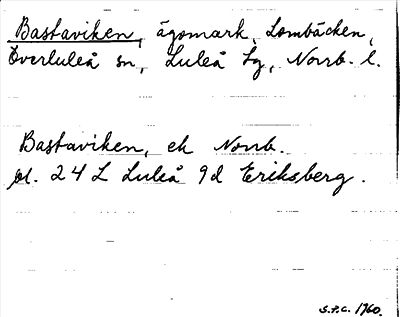 Bastaviken, ägomark, Lombäcken,
Överluleå sn, Luleå tg, Norrb. l.
Bastaviken, ek Norrb.
bl. 24 L Luleå 9d Eriksberg.
S.F.C. 1960.